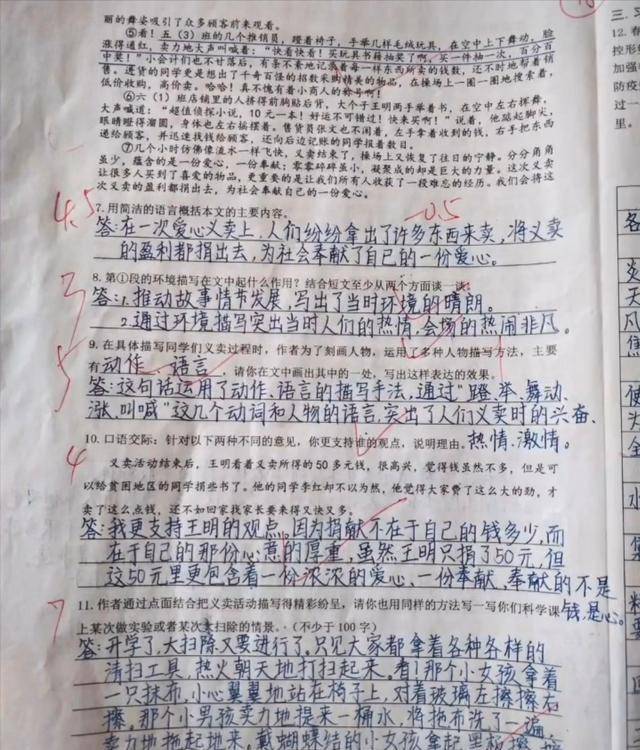 丽的舞姿吸引了众多顾客前来观看。
⑤看！五（3）班的几个推销员，蹬着椅子，手举几样毛绒玩具，在空中上下舞动，脸
涨得通红，卖力地大声叫喊着：“快看快看！买玩具书籍抽奖了啊，买一件抽一次，百分百
中奖！”小会计们也不甘落后，有条不紊地记录着每一样东西所卖的钱数，还不时地帮着销
售。进货的同学更是想出了千奇百怪的招数来购精美的物品，在操场上一圈一圈地搜索着，
低价收购，高价卖。哈哈！真不愧有着小商人的称号啊！
⑥六（1）班店铺里的人挤得前胸贴后背，大个子王明两手举着书，在空中左右挥舞，
大声喊道：“超值侦探小说，10元一本！好运不可错过！快来买啊！”说着，他踮起脚尖，
眼睛瞪得溜圆，身体也左右摇摆着。售货员张文也不闲着，左手拿着收到的钱，右手把东西
递给顾客，并迅速找钱给顾客，还向后边记账的同学报着数目。
⑦几个小时仿佛像流水一样飞快，义卖结束了，操场上又恢复了往日的宁静。分分角角
虽少，蕴含的是一份爱心，一份奉献；零零碎碎虽小，凝聚成的却是巨大的力量。这次义卖
让很多人买到了喜爱的物品，更重要的是让我们所有人收获了一段难忘的经历。我们会将这
次义卖的盈利都捐出去，为社会奉献自己的一份爱心。
4.5
-0.5
7. 用简洁的语言概括本文的主要内容。
答：在一次爱心义卖上，人们纷纷拿出了许多东西来卖，将义卖
的盈利都捐出去，为社会奉献了自己的一份爱心。
8. 第①段的环境描写在文中起什么作用？结合短文至少从两个方面谈一谈。
答：1. 推动故事情节发展，写出了当时环境的晴朗。
2. 通过环境描写突出当时人们的热情，会场的热闹非凡。
5
9. 在具体描写同学们义卖过程时，作者为了刻画人物，运用了多种人物描写方法，主要
有动作、语言，请你在文中画出其中的一处，写出这样表达的效果。
答：这句话运用了动作、语言的描写手法，通过“蹬、举、舞动、
涨、叫喊”这几个动词和人物的语言，突出了人们义卖时的兴奋、
热情、激情。
10. 口语交际：针对以下两种不同的意见，你更支持谁的观点，说明理由。
4
义卖活动结束后，王明看着义卖所得的50多元钱，很高兴，觉得钱虽然不多，但是可
以给贫困地区的同学捐些书了。他的同学李红却不以为然，他觉得大家费了这么大的劲，才
卖了这么点钱，还不如回家找家长要来得又快又多。
答：我更支持王明的观点。因为捐献不在于自己的钱多少，而
在于自己的那份心意的厚重，虽然王明只捐了50元，但
这50元里更包含着一份浓浓的爱心，一份奉献，奉献的不是
钱，是心。
7
11. 作者通过点面结合把义卖活动描写得精彩纷呈，请你也用同样的方法写一写你们科学课
上某次做实验或者某次大扫除的情景。（不少于100字）
答：开学了，大扫除又要进行了。只见大家都拿着各种各样的
清扫工具，热火朝天地打扫起来。看！那个小女孩拿着
一只抹布，小心翼翼地站在椅子上，对着玻璃左擦擦右
擦。那个小男孩卖力地提来一桶水，将拖布洗了一遍，
卖力地拖起地来。戴蝴蝶结的小女孩拿起黑板
三、
12. 春
加强
防疫
过一
里。